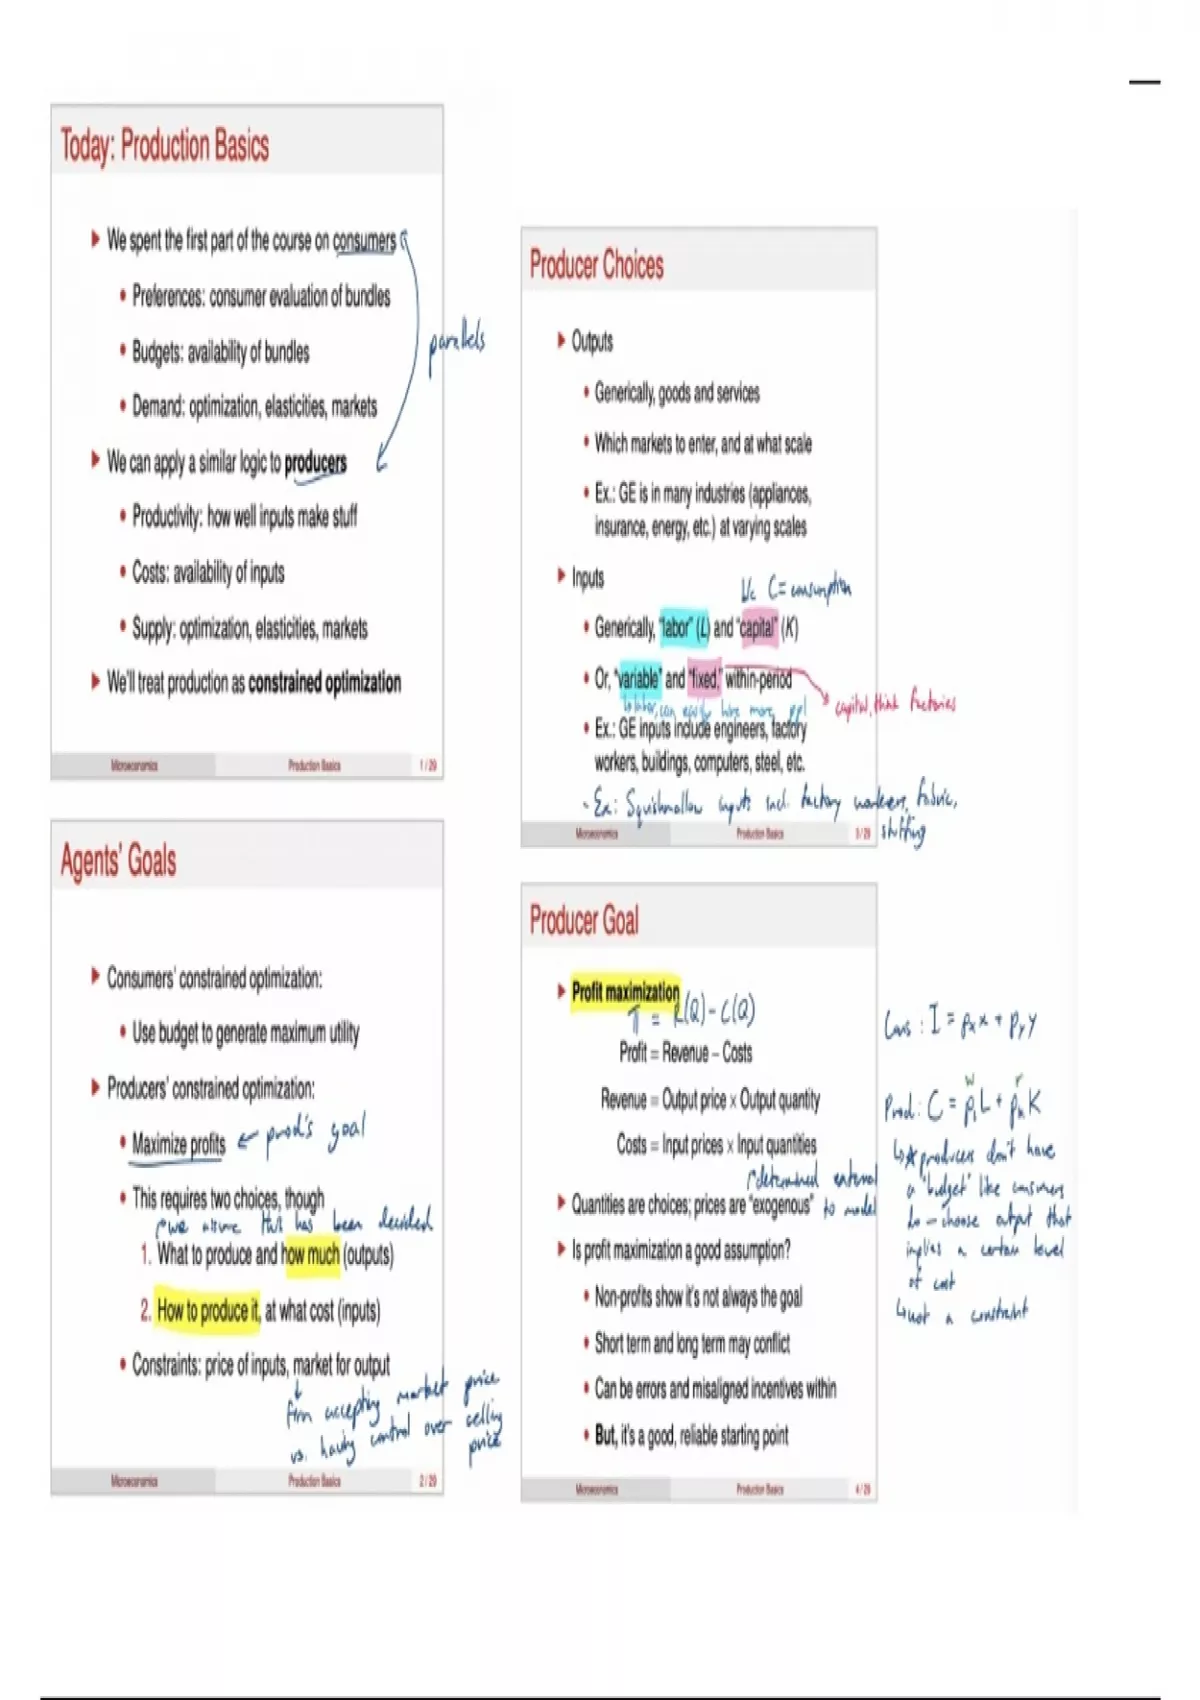 Today: Production Basics
We spent the first part of the course on consumers
Preferences: consumer evaluation of bundles
Budgets: availability of bundles
Demand: optimization, elasticities, markets
parallels
We can apply a similar logic to producers
Productivity: how well inputs make stuff
Costs: availability of inputs
Supply: optimization, elasticities, markets
We'll treat production as constrained optimization
Microeconomics Production Basics 1 / 29
Agents' Goals
Consumers' constrained optimization:
Use budget to generate maximum utility
Producers' constrained optimization:
Maximize profits ← prod's goal
This requires two choices, though
we assume this has been decided
1. What to produce and how much (outputs)
2. How to produce it, at what cost (inputs)
Constraints: price of inputs, market for output
firm accepting market price
vs. having control over selling
price
Microeconomics Production Basics 2 / 29
Producer Choices
Outputs
Generically, goods and services
Which markets to enter, and at what scale
Ex.: GE is in many industries (appliances,
insurance, energy, etc.) at varying scales
Inputs
b/c C = consumption
Generically, "labor" (L) and "capital" (K)
Or, "variable" and "fixed," within-period
capital, think factories
labor, can easily hire more ppl
Ex.: GE inputs include engineers, factory
workers, buildings, computers, steel, etc.
- Ex: Squishmallow inputs incl. factory workers, fabric,
stuffing
Microeconomics Production Basics 3 / 29
Producer Goal
Profit maximization
π = R(Q) - C(Q)
Profit = Revenue − Costs
Revenue = Output price × Output quantity
Costs = Input prices × Input quantities
determined external
to model
Quantities are choices; prices are "exogenous"
Is profit maximization a good assumption?
Non-profits show it's not always the goal
Short term and long term may conflict
Can be errors and misaligned incentives within
But, it's a good, reliable starting point
Microeconomics Production Basics 4 / 29
Cons: I = pₓx + pᵧy
w r
Prod: C = p L + p K
* producers don't have
a "budget" like consumers
do - choose output that
implies a certain level
of cost
↳ not a constraint